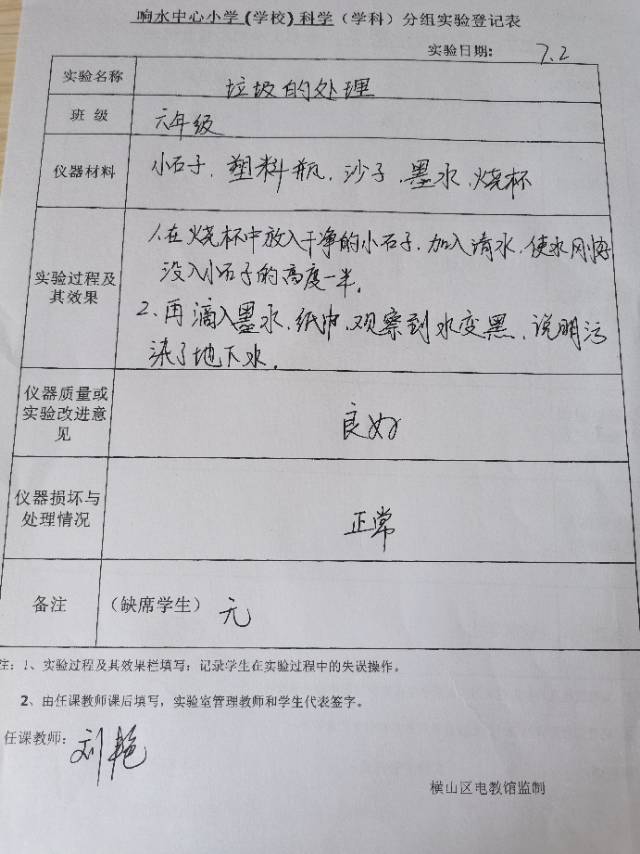 响水中心小学(学校)科学(学科)分组实验登记表
实验日期: 7.2
实验名称 垃圾的处理
班 级 六年级
仪器材料 小石子、塑料瓶、沙子、墨水、烧杯
实验过程及其效果
1、在烧杯中放入干净的小石子,加入清水,使水刚好
没入小石子的高度一半。
2、再滴入墨水、纸巾,观察到水变黑,说明污
染了地下水。
仪器质量或
实验改进意
见
良好
仪器损坏与
处理情况
正常
备注 (缺席学生) 无
注:1、实验过程及其效果栏填写:记录学生在实验过程中的失误操作。
2、由任课教师课后填写,实验室管理教师和学生代表签字。
任课教师: 刘艳
横山区电教馆监制